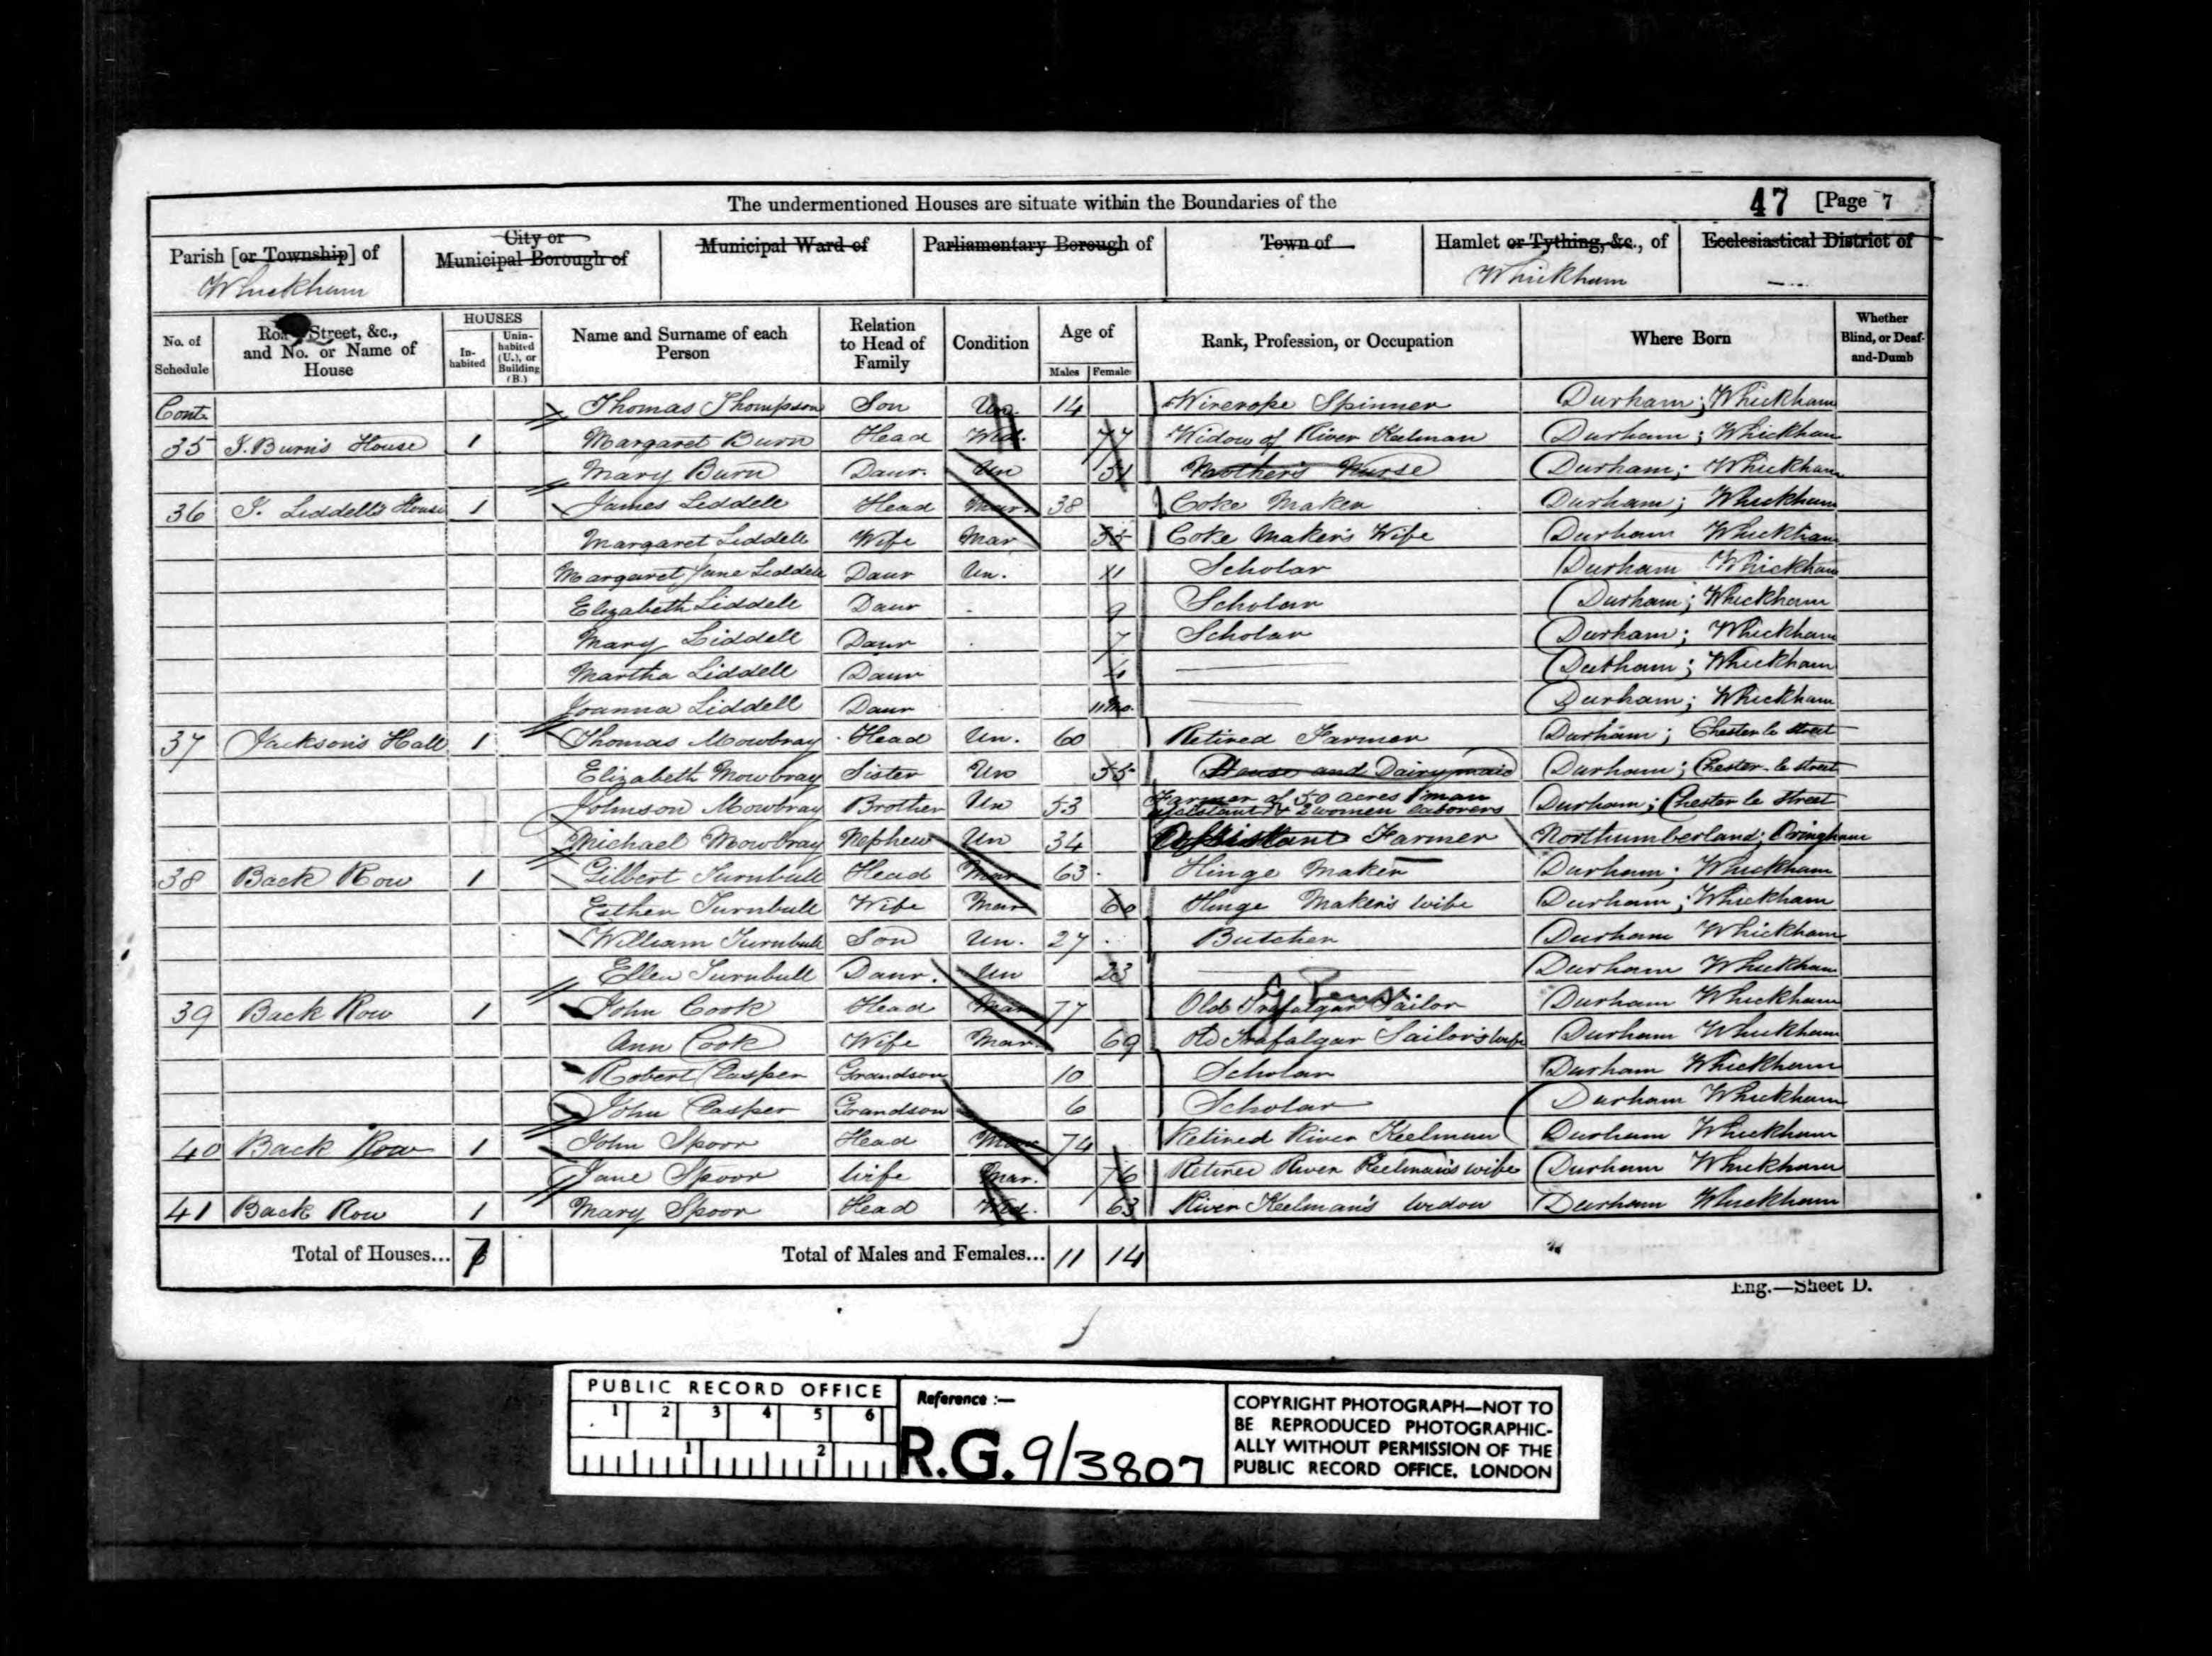 The undermentioned Houses are situate within the Boundaries of the 47 [Page 7
Parish [or Township] of Whickham
City or Municipal Borough of
Municipal Ward of
Parliamentary Borough of
Town of
Hamlet or Tything, &c., of Whickham
Ecclesiastical District of
No. of Schedule
Road, Street, &c., and No. or Name of House
HOUSES
In-habited
Unin-habited (U.), or Building (B.)
Name and Surname of each Person
Relation to Head of Family
Condition
Age of
Males Females
Rank, Profession, or Occupation
Where Born
Whether Blind, or Deaf-and-Dumb
Cont. Thomas Thompson Son Un. 14 Wirerope Spinner Durham; Whickham
35 J. Burn's House 1 Margaret Burn Head Wid. 77 Widow of River Keelman Durham; Whickham
Mary Burn Daur. Un 51 Mother's Nurse Durham; Whickham
36 J. Liddell's House 1 James Liddell Head Mar. 38 Coke Maker Durham; Whickham
Margaret Liddell Wife Mar 35 Coke Maker's Wife Durham Whickham
Margaret Jane Liddell Daur Un. 11 Scholar Durham Whickham
Elizabeth Liddell Daur 9 Scholar Durham; Whickham
Mary Liddell Daur 7 Scholar Durham; Whickham
Martha Liddell Daur 4 Durham; Whickham
Joanna Liddell Daur 11 Mo. Durham; Whickham
37 Jackson's Hall 1 Thomas Mowbray Head Un. 60 Retired Farmer Durham; Chester le Street
Elizabeth Mowbray Sister Un 55 House and Dairymaid Durham; Chester-le street
Johnson Mowbray Brother Un 53 Farmer of 50 acres 1 man assistant & 2 women laborers Durham; Chester le Street
Michael Mowbray Nephew Un 34 Assistant Farmer Northumberland; Ovingham
38 Back Row 1 Gilbert Turnbull Head Mar 63 Hinge Maker Durham; Whickham
Esther Turnbull Wife Mar 60 Hinge Maker's wife Durham; Whickham
William Turnbull Son Un. 27 Butcher Durham Whickham
Ellen Turnbull Daur. Un 23 Durham Whickham
39 Back Row 1 John Cook Head Mar 77 Old Trafalgar Sailor Durham Whickham
Ann Cook Wife Mar. 69 Old Trafalgar Sailor's wife Durham Whickham
Robert Casper Grandson 10 Scholar Durham Whickham
John Casper Grandson 6 Scholar Durham Whickham
40 Back Row 1 John Spoor Head Mar 74 Retired River Keelman Durham Whickham
Jane Spoor wife Mar. 76 Retired River Keelman's wife Durham Whickham
41 Back Row 1 Mary Spoor Head Wid. 63 River Keelman's widow Durham Whickham
Total of Houses... 7 Total of Males and Females... 11 14
Eng.—Sheet D.
PUBLIC RECORD OFFICE
1 2 3 4 5 6
1 2
Reference :—
R.G. 9/3807
COPYRIGHT PHOTOGRAPH—NOT TO
BE REPRODUCED PHOTOGRAPHIC-
ALLY WITHOUT PERMISSION OF THE
PUBLIC RECORD OFFICE, LONDON